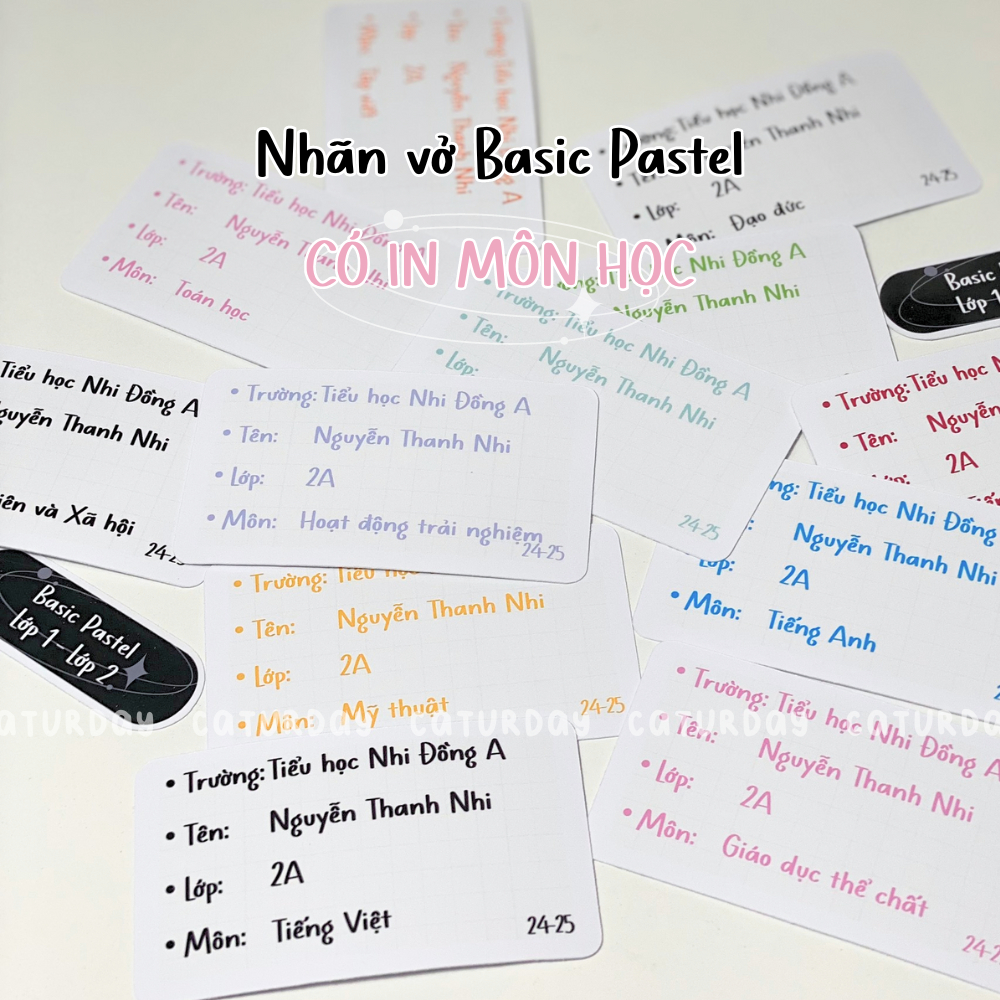 Nhãn vở Basic Pastel
CÓ IN MÔN HỌC
• Trường: Tiểu học Nhi Đồng A
• Tên: Nguyễn Thanh Nhi
2A
• Trường: Tiểu học Nhi Đồng A
Nguyễn Thanh Nhi
2A
• Lớp:
Môn: Đạo đức
24-25
• Trường: Tiểu học Nhi Đồng A
• Tên: Nguyễn Thanh Nhi
• Lớp: 2A
• Môn: Toán học
Nhi Đồng A
Nguyễn Thanh Nhi
• Trường: Tiểu học Nhi Đồng A
• Tên: Nguyễn Thanh Nhi
• Lớp:
24-25
Basic
Lớp 1
Tiểu học Nhi Đồng A
Nguyễn Thanh Nhi
và Xã hội
24-25
• Trường: Tiểu học Nhi Đồng A
• Tên: Nguyễn Thanh Nhi
• Lớp: 2A
• Môn: Hoạt động trải nghiệm
24-25
• Trường: Tiểu học
• Tên: Nguyễn
2A
Tiểu học Nhi Đồng
Nguyễn Thanh Nhi
Lớp: 2A
• Môn: Tiếng Anh
Basic Pastel
Lớp 1 - Lớp 2
• Trường: Tiểu học
• Tên: Nguyễn Thanh Nhi
• Lớp: 2A
• Môn: Mỹ thuật
24-25
CATURDAY CATURDAY CATURDAY CATURDAY CATURDAY
• Trường: Tiểu học Nhi Đồng A
• Tên: Nguyễn Thanh Nhi
• Lớp: 2A
• Môn: Giáo dục thể chất
• Trường: Tiểu học Nhi Đồng A
• Tên: Nguyễn Thanh Nhi
• Lớp: 2A
• Môn: Tiếng Việt
24-25